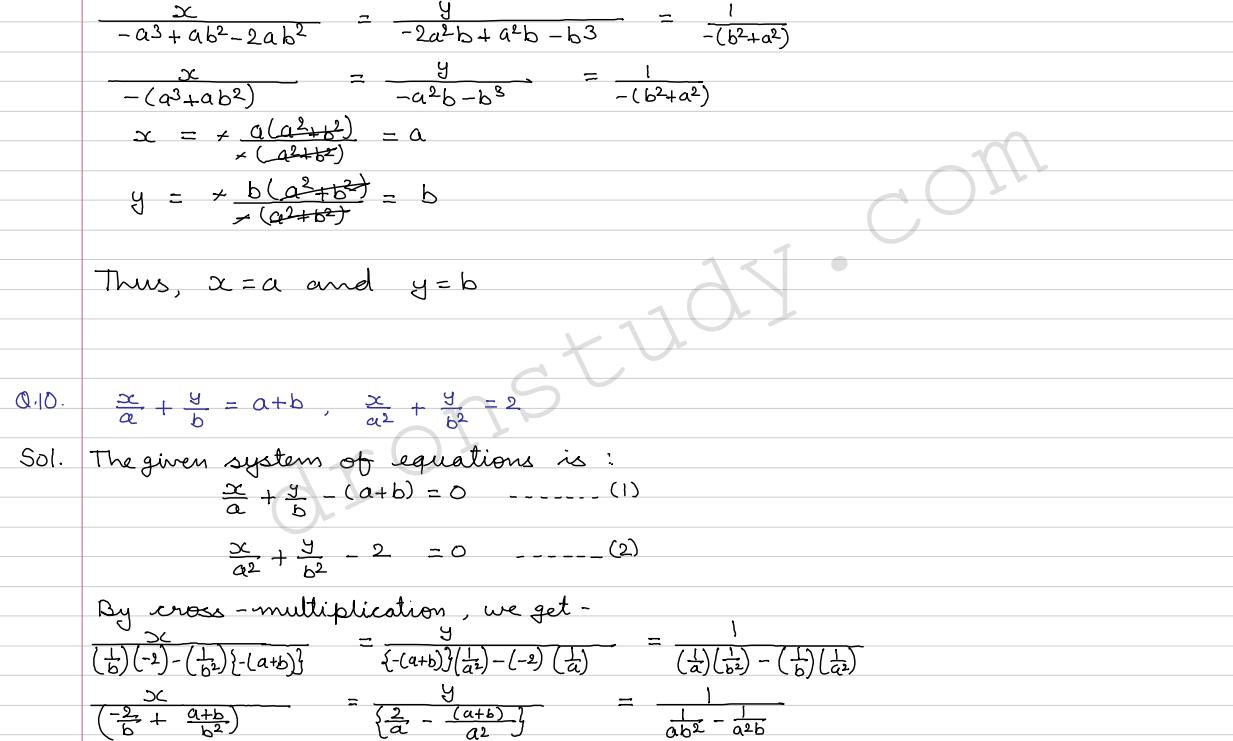 x/(-a³+ab²-2ab²) = y/(-2a²b+a²b-b³) = 1/(-(b²+a²))
x/(-(a³+ab²)) = y/(-a²b-b³) = 1/(-(b²+a²))
x = - a(a²+b²)/(-(a²+b²)) = a
y = - b(a²+b²)/(-(a²+b²)) = b
Thus, x=a and y=b
Q.10. x/a + y/b = a+b , x/a² + y/b² = 2
Sol. The given system of equations is :
x/a + y/b - (a+b) = 0 ------- (1)
x/a² + y/b² - 2 = 0 ------ (2)
By cross-multiplication, we get -
x/((1/b)(-2)-(1/b²){-(a+b)}) = y/({-(a+b)}(1/a²)-(-2)(1/a)) = 1/((1/a)(1/b²)-(1/b)(1/a²))
x/(-2/b + (a+b)/b²) = y/{2/a - (a+b)/a²} = 1/(1/ab² - 1/a²b)
dronstudy.com